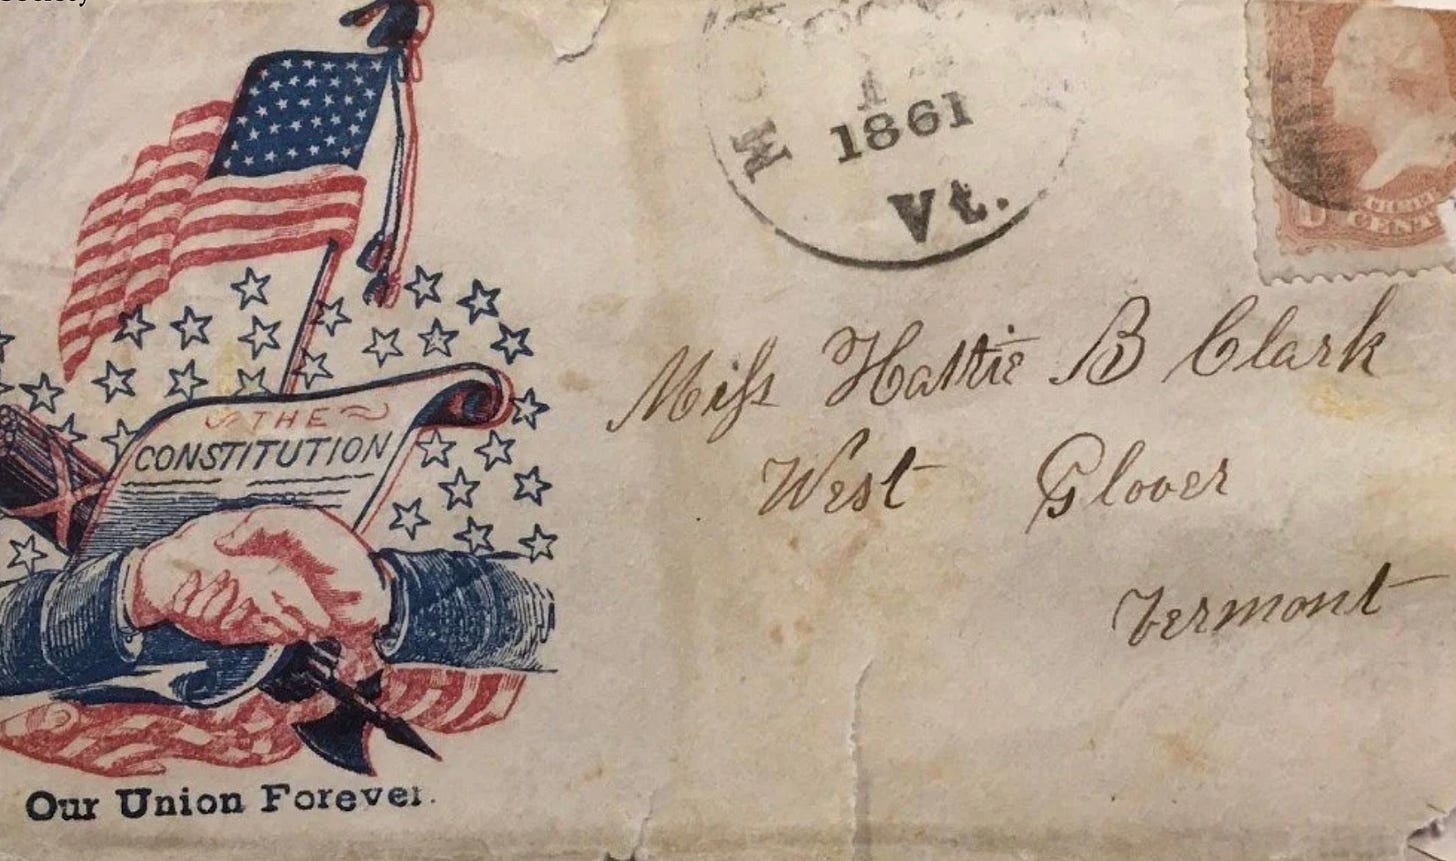 THE
CONSTITUTION
Our Union Forever.
1
1861
Vt.
THREE
CENTS
Miss Hattie B Clark
West Glover
Vermont